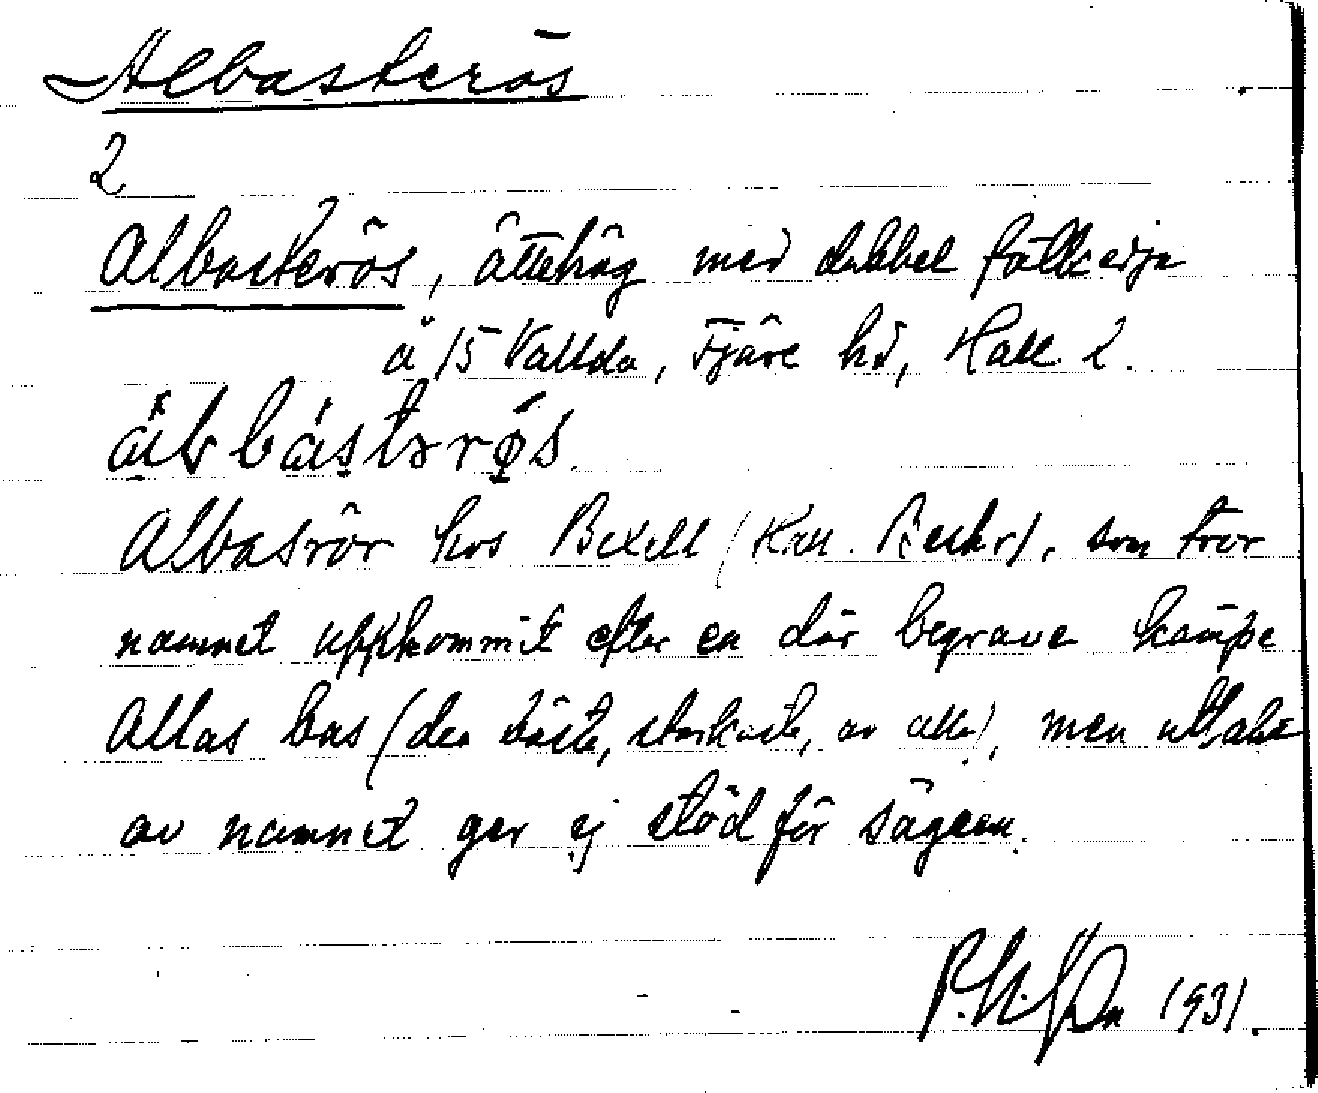 Albasterös
2
Albasterös, ättehög med dubbel fotkedja
å 15 Vallda, Fjäre hd, Hall. 2.
Albasrör hos Bexell (Hall. ), som tror
namnet uppkommit efter en där begrave kämpe
Allas bas (den bäste, starkaste, av alla), men uttalet
av namnet ger ej stöd för sägnen.
1931.